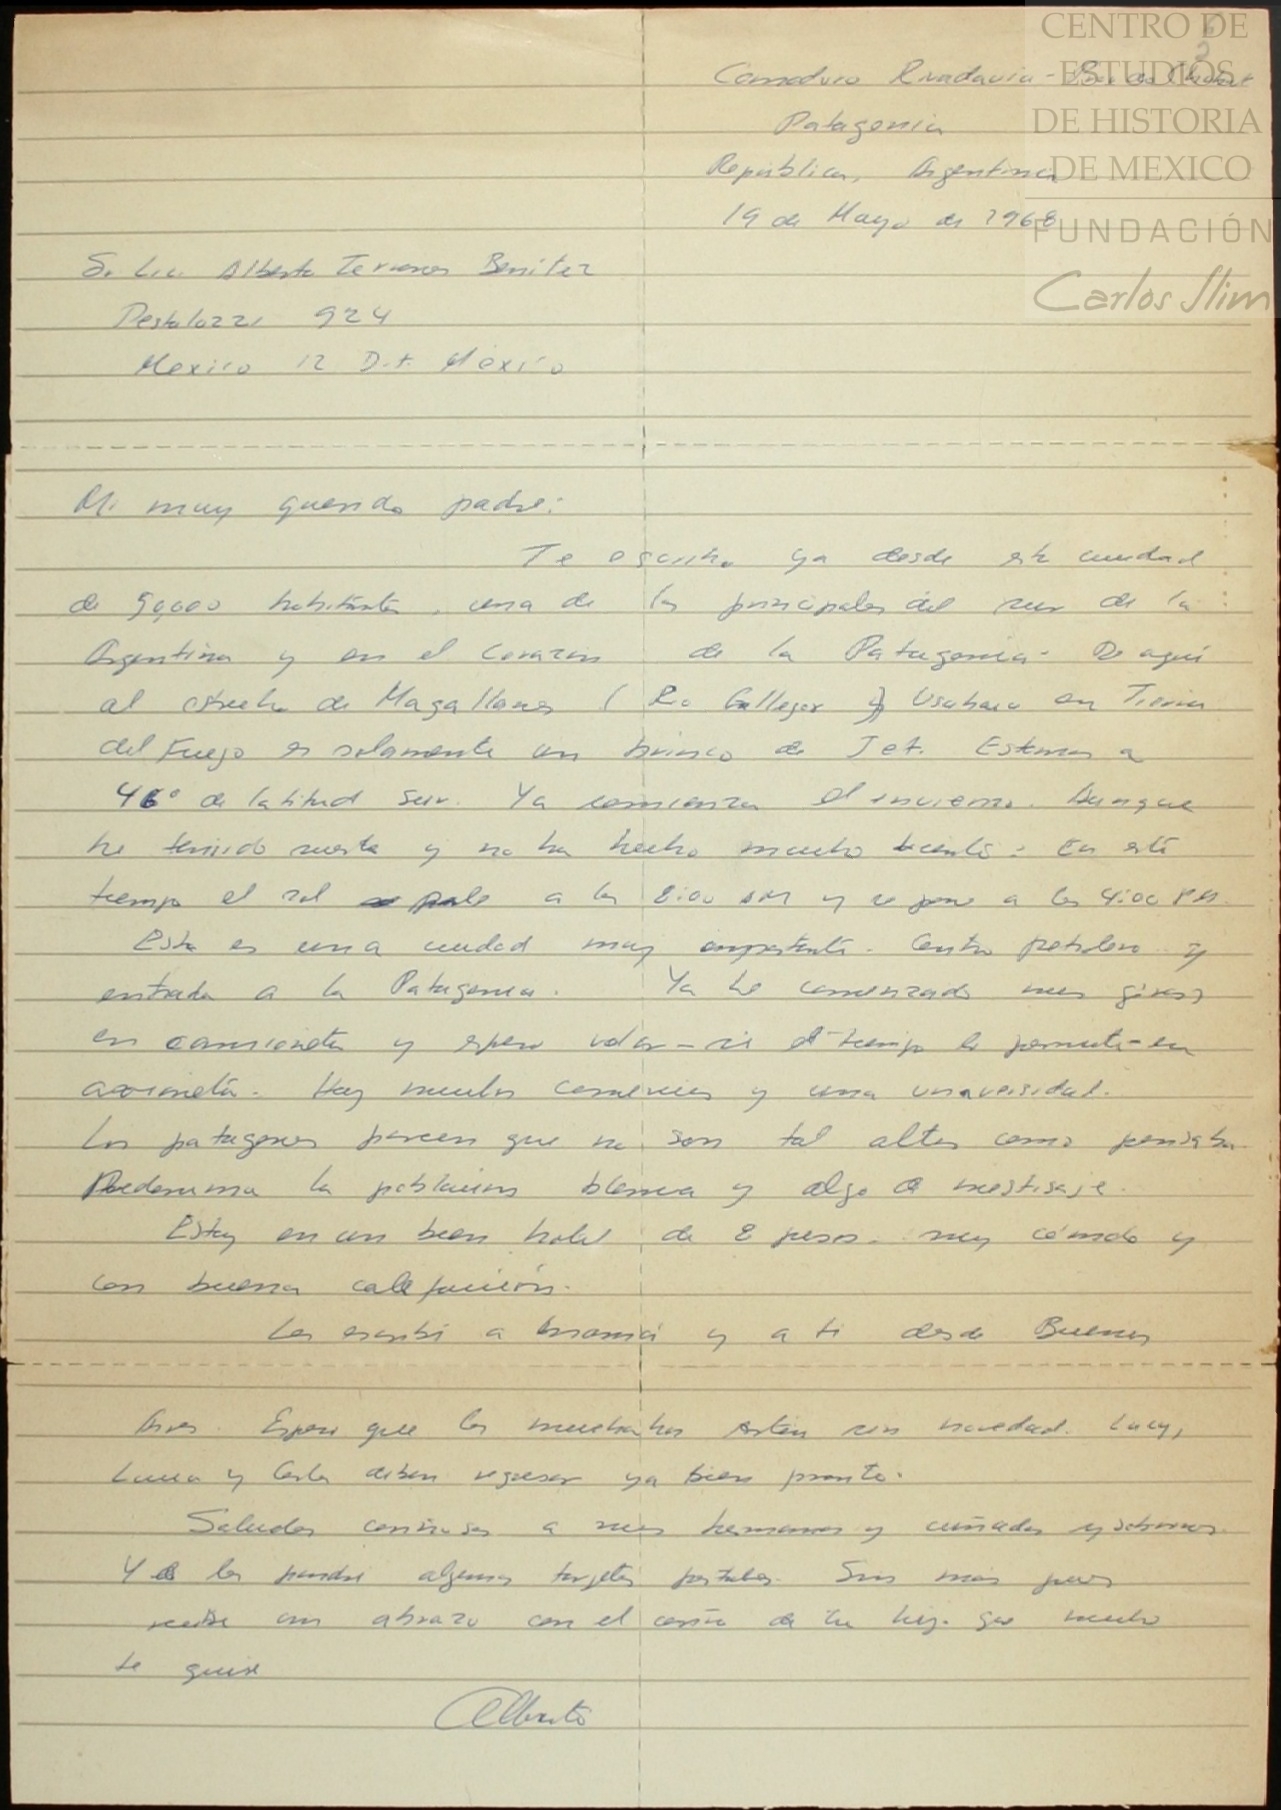 CENTRO DE
ESTUDIOS
DE HISTORIA
DE MEXICO
FUNDACIÓN
Carlos Slim
Comodoro Rivadavia - Chubut
Patagonia
República, Argentina
19 de Mayo de 1968
Sr. Lic. Alberto Terrones Benitez
Pestalozzi 924
Mexico 12 D.F. México
Mi muy querido padre:
Te escribo ya desde esta ciudad
de 90,000 habitantes, una de las principales del sur de la
Argentina y en el corazon de la Patagonia. De aqui
al estrecho de Magallanes ( Rio Gallegos ) Usuhaia en Tierra
del Fuego es solamente un brinco de Jet. Estamos a
46° de latitud Sur. Ya comienza el invierno. Aunque
he tenido suerte y no ha hecho mucho viento. En este
tiempo el sol sale a las 8:00 AM y se pone a las 4:00 PM.
Esta es una ciudad muy importante. Centro petrolero y
entrada a la Patagonia. Ya he comenzado mis giras
en camioneta y espero volar - si el tiempo lo permite - en
avioneta. Hay muchos comercios y una universidad.
Los patagones parecen que no son tal altos como pensaba.
Predomina la poblacion blanca y algo de mestisaje.
Estoy en un buen hotel de 8 pesos. muy cómodo y
con buena calefacción.
Les escribí a mamá y a ti desde Buenos
Aires. Espero que los muchachos estén sin novedad. Lucy,
y Carla deben regresar ya bien pronto.
Saludos cariñosos a mis hermanos y cuñados y sobrinos.
Ya les pondré algunas tarjetas postales. Sin más pues
recibe un abrazo con el cariño de tu hijo que mucho
te quiere
Alberto